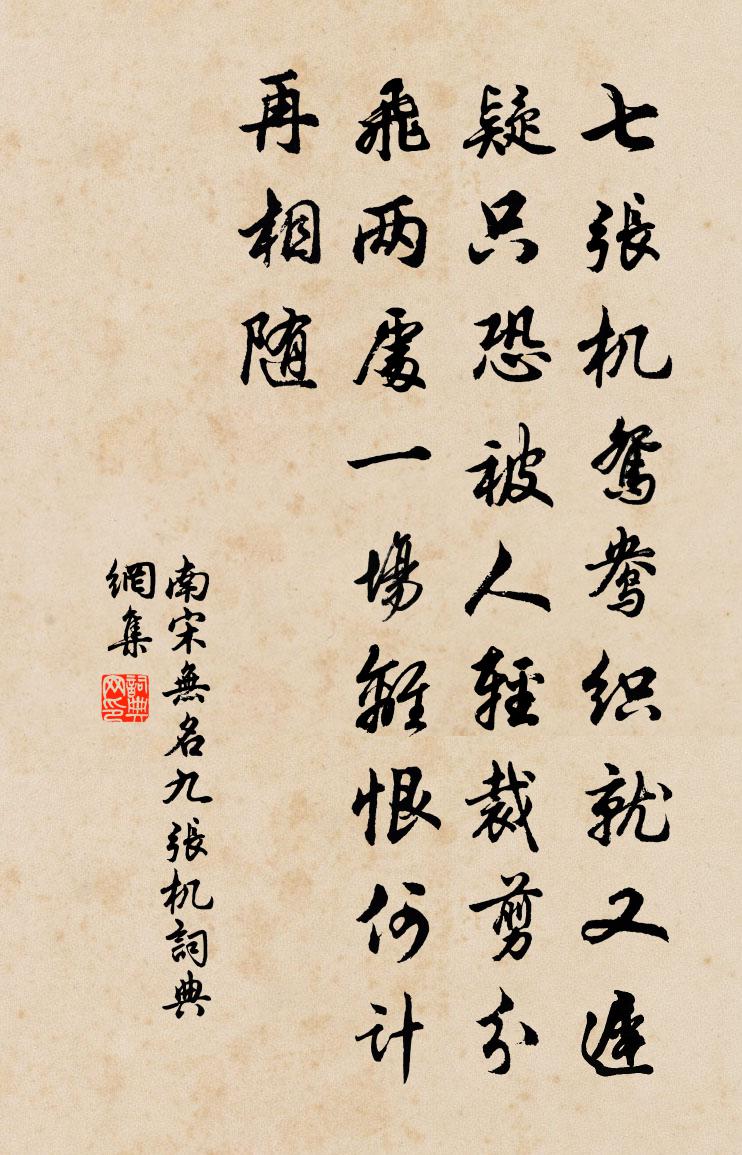 七張机鸳鸯织就又遲
疑只恐被人輕裁剪分
飛两處一場離恨何计
再相随
南宋無名九張机詞典
網集
詞典
网印